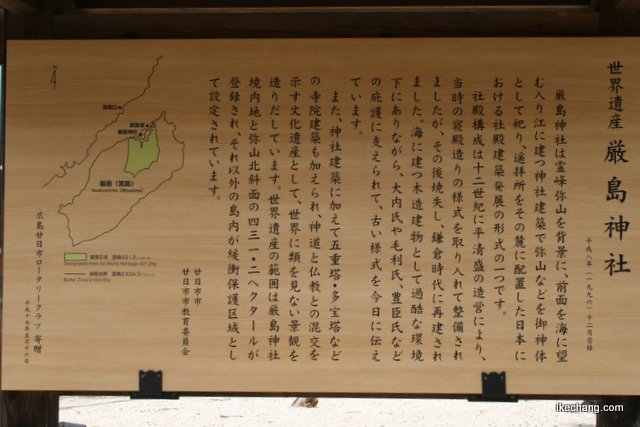 世界遺産 厳島神社
平成八年（一九九六）十二月登録
厳島神社は霊峰弥山を背景に、前面を海に望
む入り江に建つ神社建築で弥山などを御神体
として祀り、遥拝所をその麓に配置した日本に
おける社殿建築発展の形式の一つです。
社殿構成は十二世紀に平清盛の造営により、
当時の寝殿造りの様式を取り入れて整備され
ましたが、その後焼失し、鎌倉時代に再建され
ました。海に建つ木造建物として過酷な環境
下にありながら、大内氏や毛利氏、豊臣氏など
の庇護に支えられて、古い様式を今日に伝え
ています。
また、神社建築に加えて五重塔・多宝塔など
の寺院建築も加えられ、神道と仏教との混交を
示す文化遺産として、世界に類を見ない景観を
造りだしています。世界遺産の範囲は厳島神社
境内地と弥山北斜面の四三一・二ヘクタールが
登録され、それ以外の島内が緩衝保護区域とし
て設定されています。
廿日市市
廿日市市教育委員会
N
宮島口
宮島港
厳島神社
厳島（宮島）
Itsukushima (Miyajima)
遺産区域 面積431.2ha
Designated Area for World Heritage 431.2ha
緩衝地帯 面積2,634.3ha
Buffer Zone 2,634.3ha
広島廿日市ロータリークラブ 寄贈
平成十七年五月十六日
ikechang.com